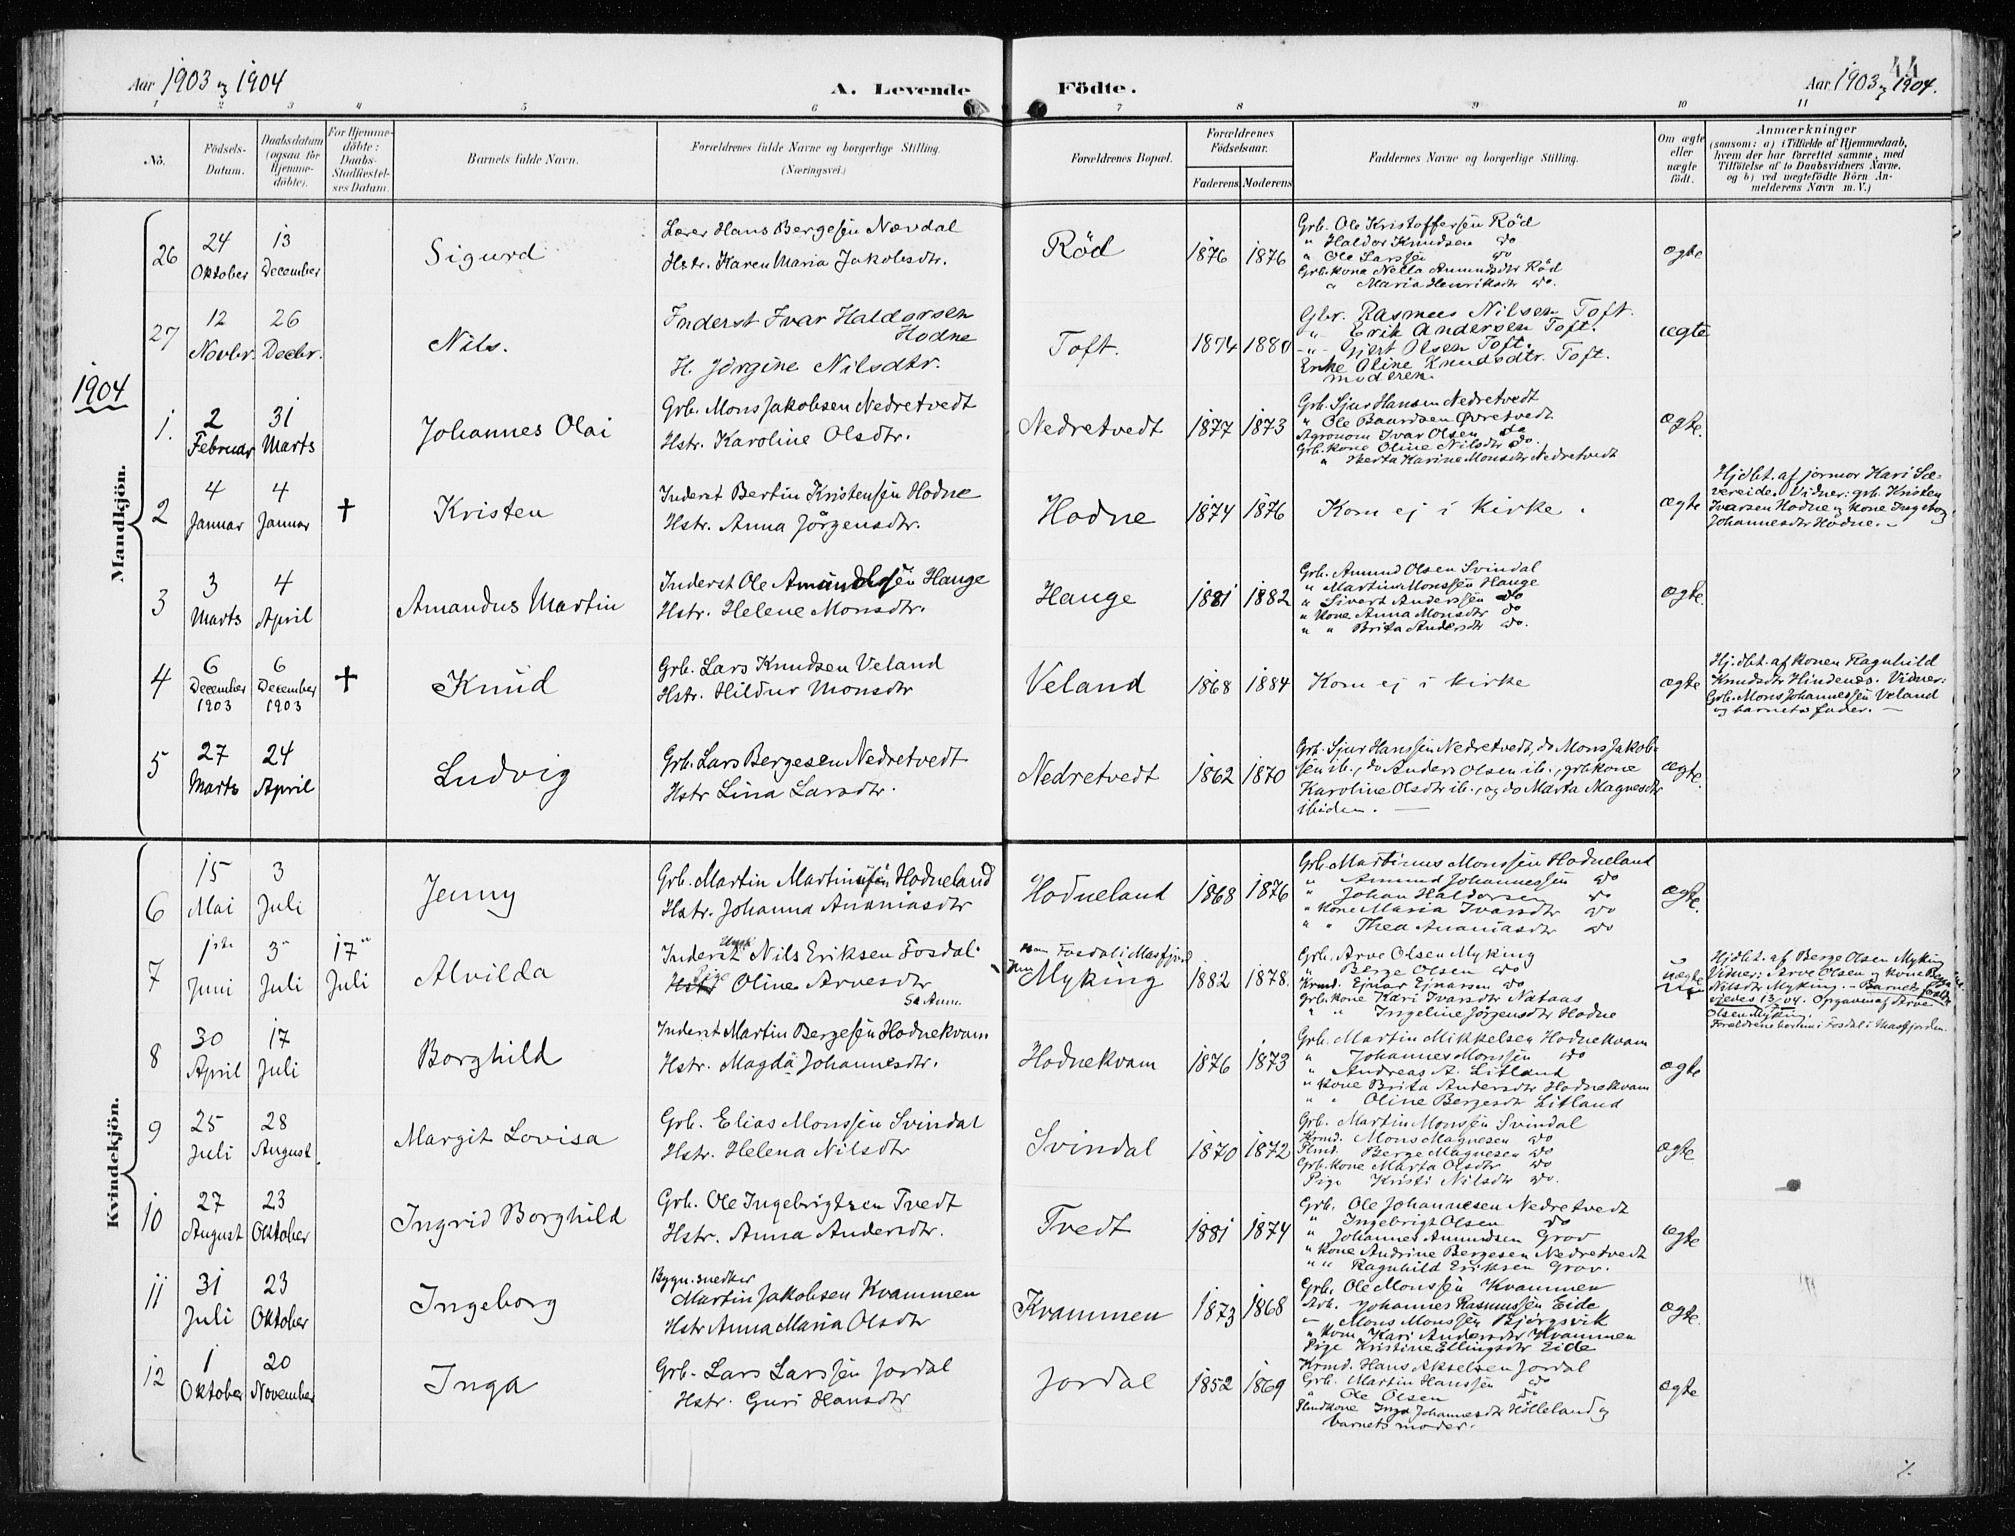 Aar 1903 og 1904
A. Levende
Födte.
44
Aar 1903 og 1904.
1 2 3 4 5 6 7 8 9 10 11
No.
Födsels-
Datum.
Daabsdatum
(ogsaa for
Hjemme-
döbte).
For Hjemme-
döbte:
Daabs-
Stadfæstel-
ses Datum.
Barnets fulde Navn.
Forældrenes fulde Navne og borgerlige Stilling.
(Næringsvei.)
Forældrenes Bopæl.
Forældrenes
Födselsaar.
Faderens
Moderens
Faddernes Navne og borgerlige Stilling.
Om ægte
eller
uægte
födt.
Anmærkninger
(saasom: a) i Tilfælde af Hjemmedaab,
hvem der har forrettet samme, med
Tilföielse af to Daabsvidners Navne.
og b) ved uegtefödte Börn An-
melderens Navn m. V.)
Mandkjön.
26
24 Oktober
13 December
Sigurd
Lærer Hans Bergesen Nævdal
Hstr. Karen Maria Jakobsdtr.
Rød
1876 1876
Grb. Ole Kristoffersen Rød
" Haldor Knudsen do
" Ole Larssen do
Grb.kona Nella Amundsdtr Rød
" Maria Henriksdtr do.
ægte
27
12 Novbr.
26 Decbr.
Nils.
Inderst Ivar Haldorsen
Hodne
H. Jörgine Nilsdtr.
Toft.
1874 1880
Gbr. Rasmus Nilsen Toft.
" Erik Andersen Toft.
-"- Gjert Olsen Toft.
Enke Oline Knudsdtr. Toft.
moderen.
ægte
1904
1.
2 Februar
31 Marts
Johannes Olai
Grb. Mons Jakobsen Nedretvedt
Hstr. Karoline Olsdtr.
Nedretvedt
1877 1873
Grb. Sjur Hansen Nedretvedt
" Ole Baardsen Øvretvedt
Agronom Ivar Olsen do
Grb.kone Oline Nilsdtr do.
" Berta Karine Monsdtr Nedretvedt
ægte.
2
4 Januar
4 Januar
✝
Kristen
Inderst Bertin Kristensen Hodne
Hstr. Anna Jörgensdtr.
Hodne
1874 1876
Kom ej i kirke.
ægte
Hjdbt. af jormor Kari Sæ-
vereide. Vidner: grb. Kristen
Ivarsen Hodne og kone Ingeborg
Johannesdtr Hodne. -
3
3 Marts
4 April
Amandus Martin
Inderst Ole Amundssen Hauge
Hstr. Helene Monsdtr.
Hauge
1881 1882
Grb. Amund Olsen Svindal
" Martin Monssen Hauge
" Sivert Anderssen do
" kone Anna Monsdtr do
" " Brita Andersdtr do.
ægte.
4
6 December 1903
6 December 1903
✝
Knud
Grb. Lars Knudsen Veland
Hstr. Hildur Monsdtr
Veland
1868 1884
Kom ej i kirke
ægte
Hjdbt. af konen Ragnhild
Knudsdtr Hindenes. Vidner:
Grb. Mons Johannessen Veland
og barnets fader. -
5
27 Marts
24 April
Ludvig
Grb. Lars Bergesen Nedretvedt
Hstr Lina Larsdtr.
Nedretvedt
1862 1870
Grb. Sjur Hanssen Nedretvedt, do Mons Jakob-
sen ib., do Anders Olsen ib., grb.kone
Karoline Olsdtr ib., og do Marta Magnesdtr
ibiden. -
ægte.
Kvindekjön.
6
15 Mai
3 Juli
Jenny
Grb. Martin Martinussen Hodneland
Hstr. Johanna Ananiasdtr
Hodneland
1868 1876
Grb. Martinus Monssen Hodneland
" Amund Johannessen do
" Johan Haldorsen do
" kone Maria Ivarsdtr do
" " Thea Ananiasdtr do
ægte.
7
1ste Juni
3 Juli
17 Juli
Alvilda
Inderst Ungk. Nils Eriksen Fosdal.
Hstr Pige Oline Arvesdtr
Se Anm.
Han Fosdal i Masfjord
Hun Myking
1882 1878.
Grb. Arve Olsen Myking
" Berge Olsen do
Krmd. Ejnar Ejnarsen do
Grb.kone Kari Ivarsdtr Nataas
" " Ingeline Jörgensdtr Hodne
uægte
Hjdbt. af Berge Olsen Myking
Vidner: Arve Olsen og kone
Nilsdtr Myking. - Barnet
13/7 04. Opgaven af Arve
Olsen Myking.
Forældrene bor i Fosdal i Masfjorden.
8
30 April
17 Juli
Borghild
Inderst Martin Bergesen Hodnekvam.
Hstr. Magda Johannesdtr.
Hodnekvam
1876 1873
Grb. Martin Mikkelsen Hodnekvam
" Johannes Monssen do
" Andreas A. Litland
" kone Brita Andersdtr Hodnekvam
" " Oline Bergesdtr Litland
ægte
9
25 Juli
28 August.
Margit Lovisa
Grb. Elias Monssen Svindal
Hstr. Helena Nilsdtr
Svindal
1870 1872
Grb. Martin Monssen Svindal
Krmd. Mons Magnesen do
Plmd. Berge Magnesen do
Grb.kone Marta Olsdtr do
Pige Kristi Nilsdtr do.
ægte
10
27 August
23 Oktober
Ingrid Borghild
Grb. Ole Ingebrigtsen Tvedt
Hstr. Anna Andersdtr.
Tvedt
1881 1874
Grb. Ole Johannesen Nedretvedt
" Ingebrigt Olsen do
" Johannes Amundsen Grov
" kone Andrine Bergesen Nedretvedt
" " Ragnhild Eriksen Grov.
ægte
11
31 Juli
23 Oktober
Ingeborg
Bygn.snedker
Martin Jakobsen Kvammen
Hstr Anna Maria Olsdtr
Kvammen
1873 1868
Grb. Ole Monssen Kvammen
Arb. Johannes Rasmussen Eide
- Mons Monssen Bjørgsvik
" kone Kari Andersdtr Kvammen
Pige Kristine Ellingsdtr Eide
ægte.
12
1 Oktober
20 November
Inga
Grb. Lars Larssen Jordal
Hstr. Guri Hansdtr
Jordal
1852 1869
Krmd. Hans Akselsen Jordal
Grb. Martin Hanssen do
" Ole Olsen do
Inga Johannesdtr Hölleland og
barnets moder.
ægte